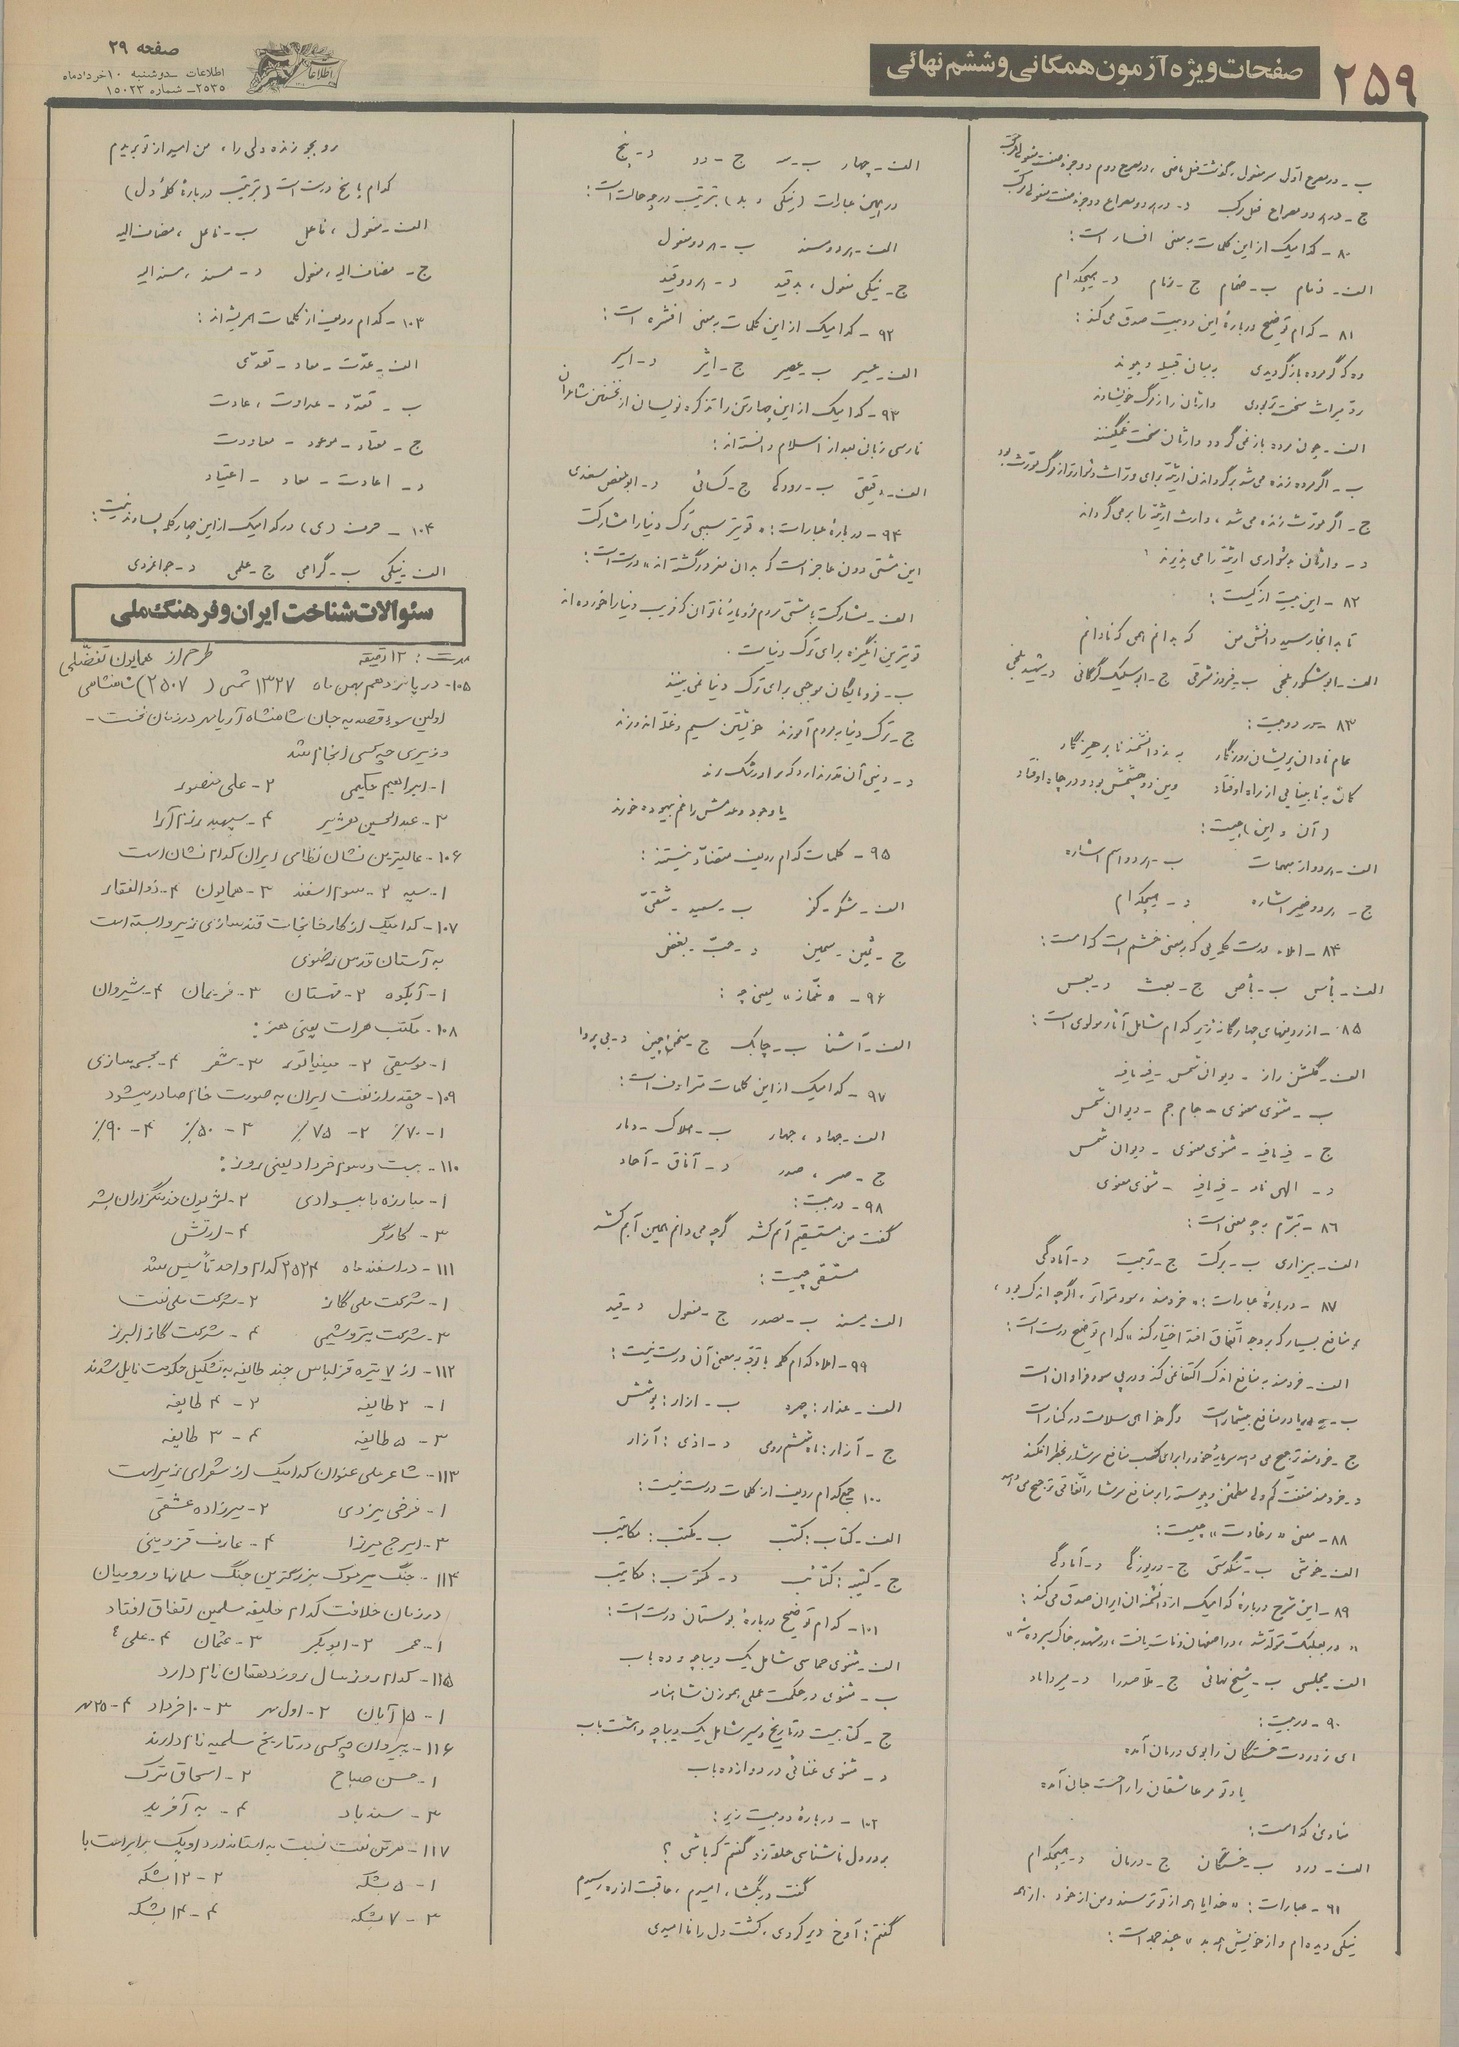 ۲۵۹
صفحات ویژه آزمون همگانی و ششم نهائی
صفحه ۲۹
اطلاعات سه‌شنبه ۱۰ خردادماه
۲۵۳۵ـ شماره ۱۵۰۲۳
ج ـ در هر دو مصراع فعل مرکب د ـ در هر دو مصراع دو جزء صفت مفعولی مرکب
۸۰ ـ کدامیک از این کلمات به معنی افسار است :
الف ـ ذمام ب ـ ضمام ج ـ زمام د ـ هیچکدام
۸۱ ـ کدام توضیح درباره این دو بیت صدق می‌کند :
وه که گر مرده باز گردیدی به میان قبیله و پیوند
رد میراث سخت‌تر بودی وارثان را ز مرگ خویشاوند
الف ـ چون مرده باز نمی‌گردد وارثان سخت غمگینند
ب ـ اگر مرده زنده می‌شد برگرداندن ارثیه برای وراث دشوارتر از مرگ مورث بود
ج ـ اگر مورث زنده می‌شد ، وارث ارثیه را برمی‌گرداند
د ـ وارثان بدشواری ارثیه را می‌پذیرند
۸۲ ـ این بیت از کیست :
تا بدانجا رسید دانش من که بدانم همی که نادانم
الف ـ ابوشکور بلخی ب ـ فیروز مشرقی ج ـ ابوسلیک گرگانی د ـ شهید بلخی
۸۳ ـ در دو بیت :
عام نادان پریشان روزگار به ز دانشمند ناپرهیزگار
کان به نابینایی از راه اوفتاد وین دو چشمش بود و در چاه اوفتاد
(آن و این) چیست :
الف ـ هر دو از مبهمات ب ـ هر دو اسم اشاره
ج ـ هر دو ضمیر اشاره د ـ هیچکدام
۸۴ ـ املاء درست کلمه‌یی که به معنی خشم است کدامست :
الف ـ بأس ب ـ بأص ج ـ بعث د ـ بعس
۸۵ ـ از ردیفهای چهارگانه زیر کدام شامل آثار مولوی است :
الف ـ گلشن راز ـ دیوان شمس ـ فیه مافیه
ب ـ مثنوی معنوی ـ جام جم ـ دیوان شمس
ج ـ فیه مافیه ـ مثنوی معنوی ـ دیوان شمس
د ـ الهی نامه ـ فیه مافیه ـ مثنوی معنوی
۸۶ ـ تبرّم به چه معنی است :
الف ـ بیزاری ب ـ برکت ج ـ تربیت د ـ آمادگی
۸۷ ـ درباره عبارات : « خردمند ، سود متواتر ، اگرچه اندک بود ،
بر منافع بسیار که بر وجه اتفاق افتد اختیار کند » کدام توضیح درست است :
الف ـ خردمند به منافع اندک اکتفا نمی‌کند و در پی سود فراوان است
ب ـ به دریا در منافع بیشمار است وگر خواهی سلامت در کنار است
ج ـ خردمند ترجیح می‌دهد سرمایه خود را برای کسب منافع سرشار بخطر افکند
د ـ خردمند منفعت کم ولی مطمئن و پیوسته را بر منافع سرشار اتفاقی ترجیح می‌دهد
۸۸ ـ معنی « رغادت » چیست :
الف ـ خوشی ب ـ تنگدستی ج ـ دریوزگی د ـ آمادگی
۸۹ ـ این شرح درباره کدامیک از دانشمندان ایران صدق می‌کند :
« در بعلبک متولد شد ، در اصفهان وفات یافت ، در مشهد به خاک سپرده شد »
الف ـ مجلسی ب ـ شیخ بهائی ج ـ ملا صدرا د ـ میرداماد
۹۰ ـ در بیت :
ای ز دردت خستگان را بوی درمان آمده
یاد تو مر عاشقان را راحت جان آمده
منادی کدامست :
الف ـ درد ب ـ خستگان ج ـ درمان د ـ هیچکدام
۹۱ ـ عبارات : « خدایا همه از تو ترسند و من از خود . از تو همه
نیکی دیده‌ام و از خویش همه بد » چند جمله است :
الف ـ چهار ب ـ سه ج ـ دو د ـ پنج
در همین عبارات (نیکی و بد) بترتیب در چه حالت است :
الف ـ هر دو مسند ب ـ هر دو مفعول
ج ـ نیکی مفعول ، بد قید د ـ هر دو قید
۹۲ ـ کدامیک از این کلمات به معنی افشره است :
الف ـ عسیر ب ـ عصیر ج ـ اثیر د ـ اسیر
۹۳ ـ کدامیک از این چهار تن را تذکره نویسان از نخستین شاعران
فارسی زبان بعد از اسلام دانسته‌اند :
الف ـ دقیقی ب ـ رودکی ج ـ کسائی د ـ ابوحفص سغدی
۹۴ ـ درباره عبارات : « قویتر سببی ترک دنیا را مشارکت
این مشتی دون عاجز است که بدان مغرور گشته‌اند » درست است :
الف ـ مشارکت با مشتی مردم فرومایه ناتوان که فریب دنیا را خورده‌اند
قویترین انگیزه برای ترک دنیاست .
ب ـ فرومایگان موجبی برای ترک دنیا نمی‌بینند
ج ـ ترک دنیا به مردم آموزند خویشتن سیم و غله اندوزند
د ـ دنیی آن قدر ندارد که بر او رشک برند
یا وجود و عدمش را غم بیهوده خورند
۹۵ ـ کلمات کدام ردیف متضاد نیستند :
الف ـ شکر ـ کفر ب ـ سعید ـ شقیّ
ج ـ ثمین ـ سمین د ـ حبّ ـ بغض
۹۶ ـ « غمّاز » یعنی چه :
الف ـ آشنا ب ـ چابک ج ـ سخن‌چین د ـ بی پروا
۹۷ ـ کدامیک از این کلمات مترادف است :
الف ـ جهاد ، جهار ب ـ هلاک ـ دمار
ج ـ صبر ، صدر د ـ آفاق ـ آحاد
۹۸ ـ در بیت :
گفت من مستسقیم آبم کشد گرچه می‌دانم همین آبم کشد
مستسقی چیست :
الف ـ مسند ب ـ مصدر ج ـ مفعول د ـ قید
۹۹ ـ املاء کدام کلمه با توجه به معنی آن درست نیست :
الف ـ عذار : چهره ب ـ ازار : پوشش
ج ـ آزار : ماه ششم رومی د ـ اذی : آزار
۱۰۰ ـ جمع کدام ردیف از کلمات درست نیست :
الف ـ کتاب : کتب ب ـ مکتب : مکاتیب
ج ـ کتیبه : کتائب د ـ مکتوب : مکاتیب
۱۰۱ ـ کدام توضیح درباره بوستان درست است :
الف ـ مثنوی حماسی شامل یک دیباچه و ده باب
ب ـ مثنوی در حکمت عملی بر وزن شاهنامه
ج ـ کتابیست در تاریخ و سیر شامل یک دیباچه و هشت باب
د ـ مثنوی غنائی در دوازده باب
۱۰۲ ـ درباره دو بیت زیر :
بر در دل ناشناسی حلقه زد گفتم که باشی ؟
گفت در بگشا ، امیدم ، عاقبت از ره رسیدم
گفتم : آوخ دیر کردی ، کشت دل را ناامیدی
رو بجو زنده دلی را ، من امید از تو بریدم
کدام پاسخ درست است (بترتیب درباره کلمه دل)
الف ـ مفعول ، فاعل ب ـ فاعل ، مضاف الیه
ج ـ مضاف الیه ، مفعول د ـ مسند ، مسند الیه
۱۰۳ ـ کدام ردیف از کلمات هم ریشه‌اند :
الف ـ عدّت ـ معاد ـ تعدّی
ب ـ تعدّد ـ عداوت ، عادت
ج ـ معتاد ـ موعود ـ معاودت
د ـ اعادت ـ معاد ـ اعتیاد
۱۰۴ ـ حرف (ی) در کدامیک از این چهار کلمه پساوند نیست :
الف ـ نیکی ب ـ گرامی ج ـ علمی د ـ جوانمردی
سئوالات شناخت ایران و فرهنگ ملی
مدت : ۱۲ دقیقه طرح از همایون تفضّلی
۱۰۵ـ در پانزدهم بهمن ماه ۱۳۲۷ شمسی (۲۵۰۷) شاهنشاهی
اولین سوء قصد به جان شاهنشاه آریامهر در زمان نخست ـ
وزیری چه کسی انجام شد
۱ـ ابراهیم حکیمی ۲ـ علی منصور
۳ـ عبدالحسین هژیر ۴ـ سپهبد رزم آرا
۱۰۶ـ عالیترین نشان نظامی ایران کدام نشان است
۱ـ سپه ۲ـ سوم اسفند ۳ـ همایون ۴ـ ذوالفقار
۱۰۷ـ کدامیک از کارخانجات قند سازی زیر وابسته است
به آستان قدس رضوی
۱ـ آبکوه ۲ـ قهستان ۳ـ فریمان ۴ـ شیروان
۱۰۸ـ مکتب هرات یعنی هنر :
۱ـ موسیقی ۲ـ مینیاتور ۳ـ شعر ۴ـ مجسمه‌سازی
۱۰۹ـ چقدر از نفت ایران به صورت خام صادر میشود
۱ـ ۷۰٪ ۲ـ ۷۵٪ ۳ـ ۵۰٪ ۴ـ ۹۰٪
۱۱۰ـ بیست و سوم خرداد یعنی روز :
۱ـ مبارزه با بیسوادی ۲ـ لژیون خدمتگزاران بشر
۳ـ کارگر ۴ـ ارتش
۱۱۱ـ در اسفند ماه ۲۵۲۴ کدام واحد تأسیس شد
۱ـ شرکت ملی گاز ۲ـ شرکت ملی نفت
۳ـ شرکت پتروشیمی ۴ـ شرکت گاز البرز
۱۱۲ـ از ۷ تیره قزلباش چند طایفه به تشکیل حکومت نایل شدند
۱ـ ۲ طایفه ۲ـ ۴ طایفه
۳ـ ۵ طایفه ۴ـ ۳ طایفه
۱۱۳ـ شاعر ملی عنوان کدامیک از شعرای زیر است
۱ـ فرخی یزدی ۲ـ میرزاده عشقی
۳ـ ایرج میرزا ۴ـ عارف قزوینی
۱۱۴ـ جنگ یرموک بزرگترین جنگ مسلمانها و رومیان
در زمان خلافت کدام خلیفه مسلمین اتفاق افتاد
۱ـ عمر ۲ـ ابوبکر ۳ـ عثمان ۴ـ علی ع
۱۱۵ـ کدام روز سال روز دهقان نام دارد
۱ـ ۱۵ آبان ۲ـ اول مهر ۳ـ ۱۰ خرداد ۴ـ ۲۵ مهر
۱۱۶ـ پیروان چه کسی در تاریخ مسلمیه نام دارند
۱ـ حسن صباح ۲ـ اسحاق ترک
۳ـ سندباد ۴ـ به آفرید
۱۱۷ـ هر تن نفت نسبت به استاندارد اوپک برابر است با
۱ـ ۵ بشکه ۲ـ ۱۲ بشکه
۳ـ ۷ بشکه ۴ـ ۱۴ بشکه